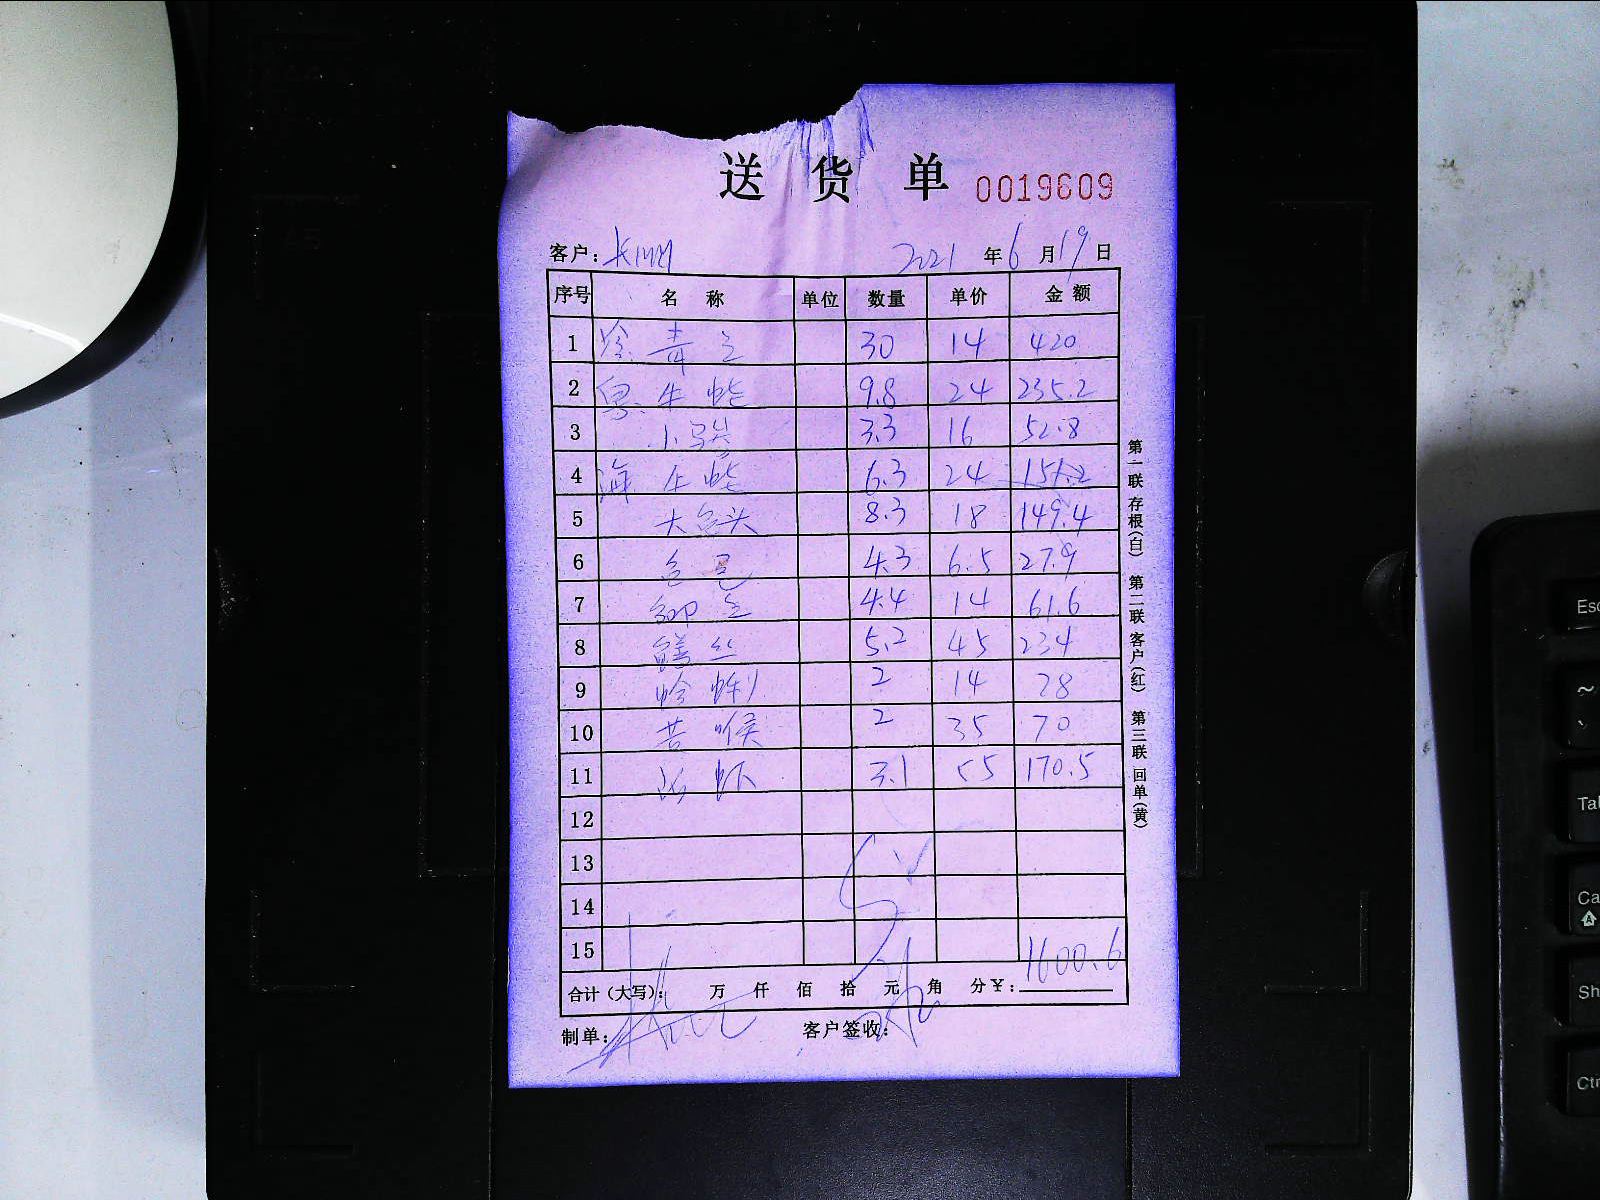 送货单 0019609
客户: 2021年6月19日
序号 名称 单位 数量 单价 金额
1 30 14 420
2 牛蛇 9.8 24 235.2
3 3.3 16 52.8
4 海 牛蛇 6.3 24 151.2
5 大鱼头 8.3 18 149.4
6 4.3 6.5 27.9
7 4.4 14 61.6
8 鳝丝 5.2 45 234
9 蛤蜊 2 14 28
10 2 35 70
11 虾 3.1 55 170.5
12
13
14
15 1600.6
合计(大写): 万仟佰拾元角分¥:
制单: 客户签收:
第一联 存根(白) 第二联 客户(红) 第三联 回单(黄)
Esc
~
Tab
Ca
Sh
Ctr